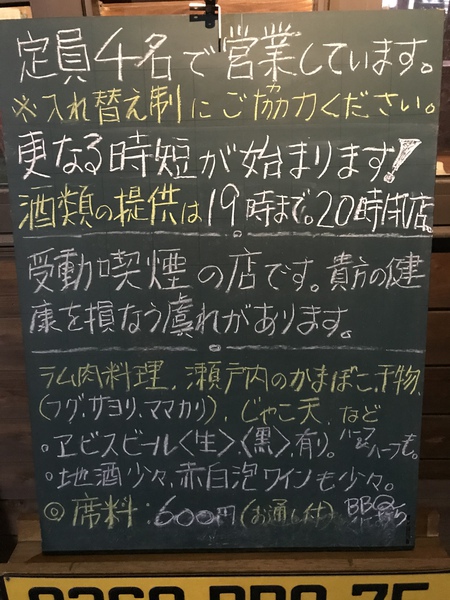 定員4名で営業しています。
※入れ替え制にご協力ください。
更なる時短が始まります!
酒類の提供は19時まで。20時閉店。
受動喫煙の店です。貴方の健
康を損なう虞れがあります。
ラム肉料理、瀬戸内のかまぼこ、干物、
(フグ、サヨリ、ママカリ)、じゃこ天、など
。ヱビスビール〈生〉、〈黒〉、有り。ハーフ&ハーフも。
。地酒少々、赤白泡ワインも少々。
◎席料:600円(お通し付)